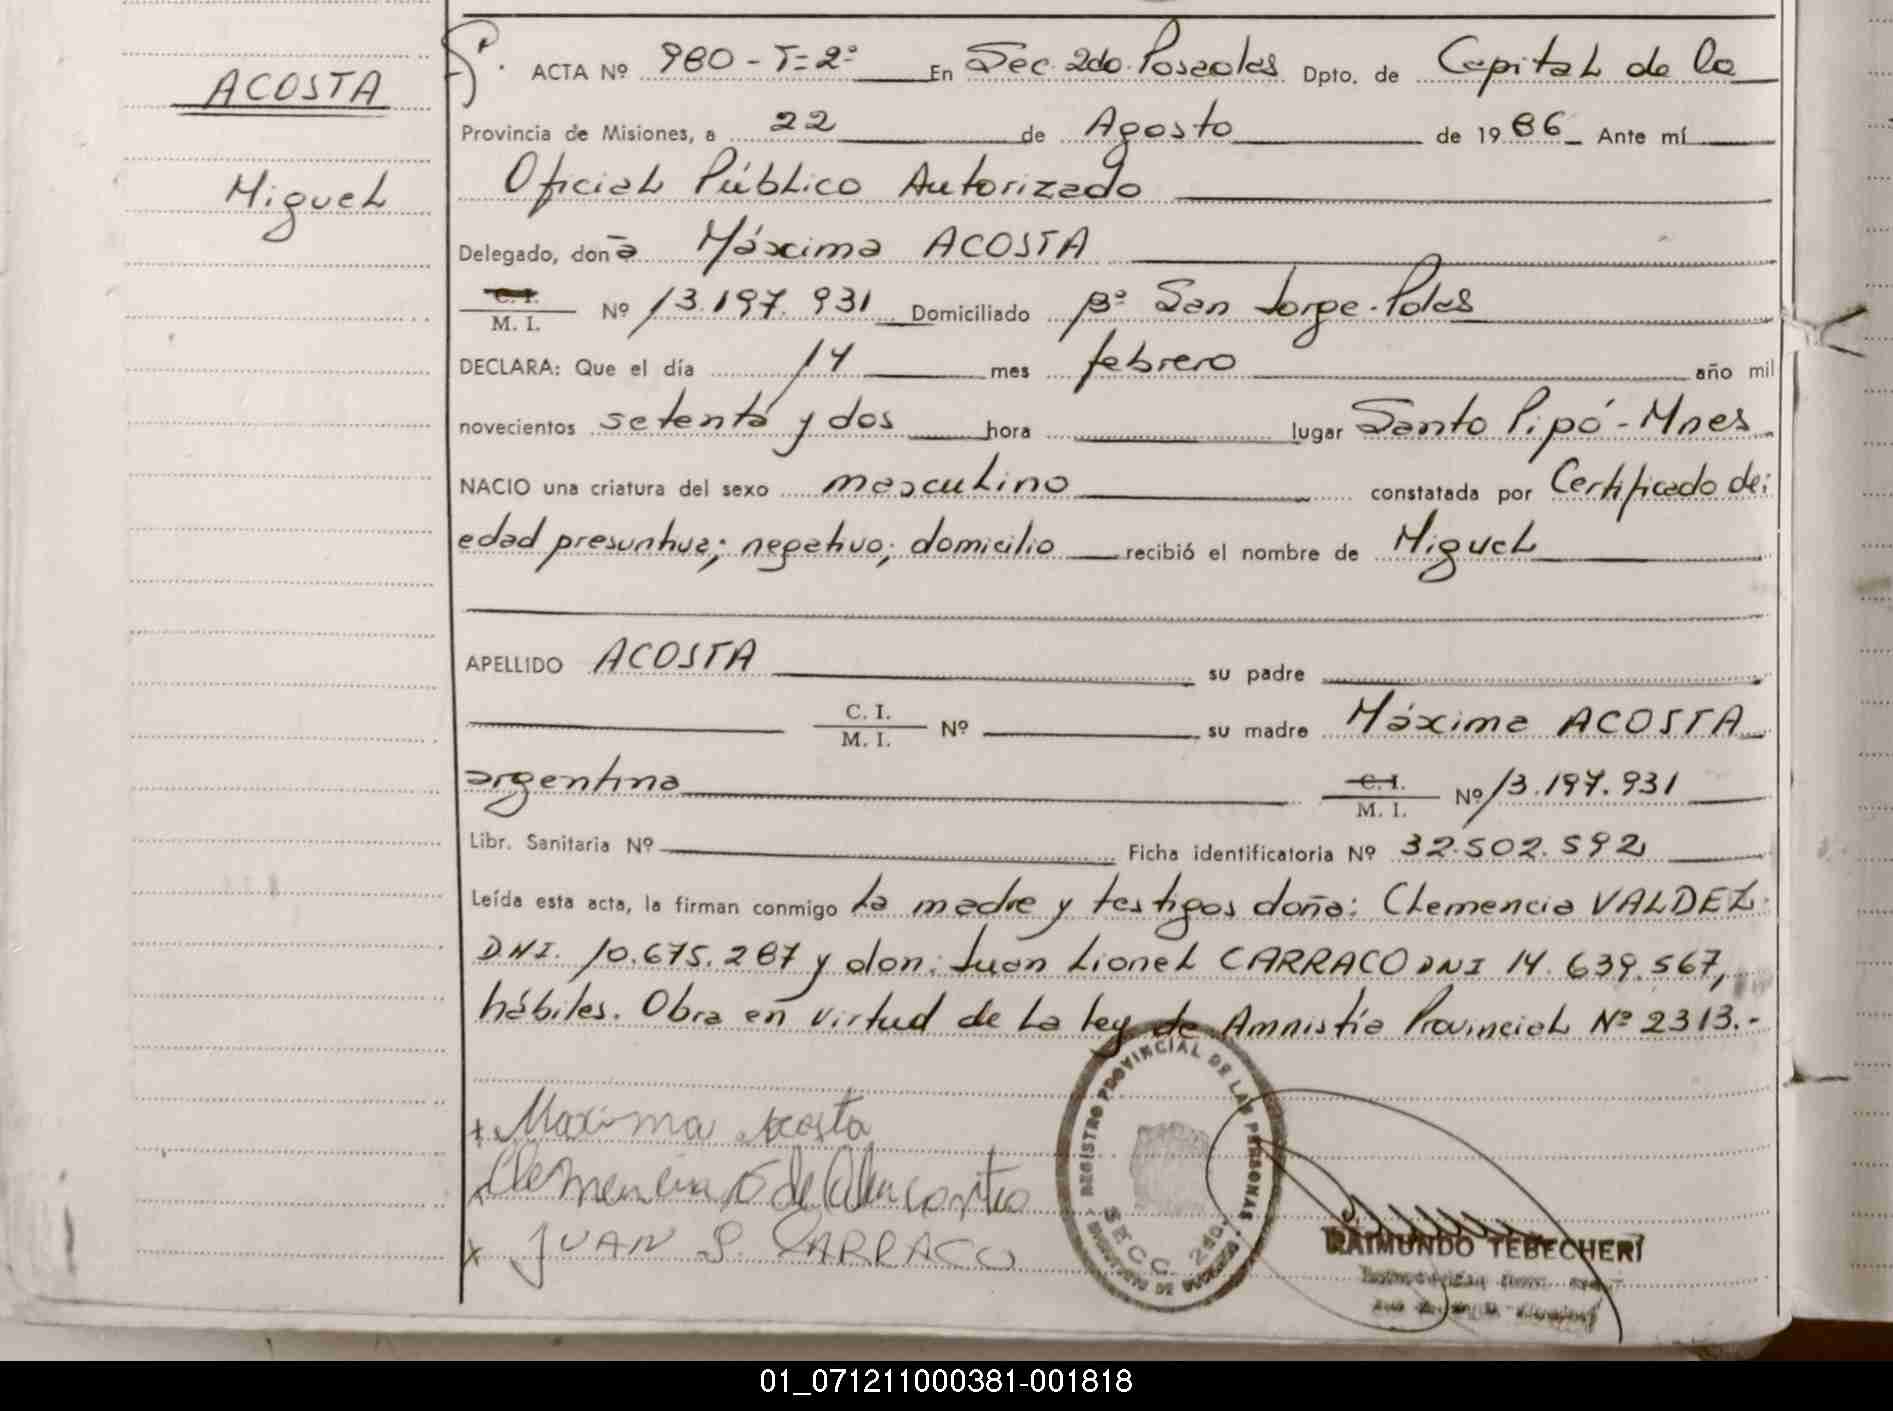 ACOSTA
Miguel
ACTA Nº 980 - T=2º En Sec. 2do. Posadas Dpto. de Capital de la
Provincia de Misiones, a 22 de Agosto de 1986 Ante mí
Oficial Público Autorizado
Delegado, doña Máxima ACOSTA
C. I.
M. I. Nº 13.197.931 Domiciliado Bº San Jorge-Pdas
DECLARA: Que el día 14 mes febrero año mil
novecientos setenta y dos hora lugar Santo Pipó - Mnes
NACIO una criatura del sexo masculino constatada por Certificado de:
edad presuntiva; negativo; domicilio recibió el nombre de Miguel
APELLIDO ACOSTA su padre
C. I.
M. I. Nº su madre Máxima ACOSTA
argentina C. I.
M. I. Nº 13.197.931
Libr. Sanitaria Nº Ficha identificatoria Nº 32.502.592
Leída esta acta, la firman conmigo la madre y testigos doña: Clemencia VALDEZ
DNI. 10.675.287 y don: Juan Lionel CARRACO DNI 14.639.567,
hábiles. Obra en virtud de la ley de Amnistía Provincial Nº 2313.-
Maxima Acosta
Clemencia de
JUAN L. CARRACO
REGISTRO PROVINCIAL DE LAS PERSONAS
SECC. 2do.
RAIMUNDO TEBECHERI
01_071211000381-001818